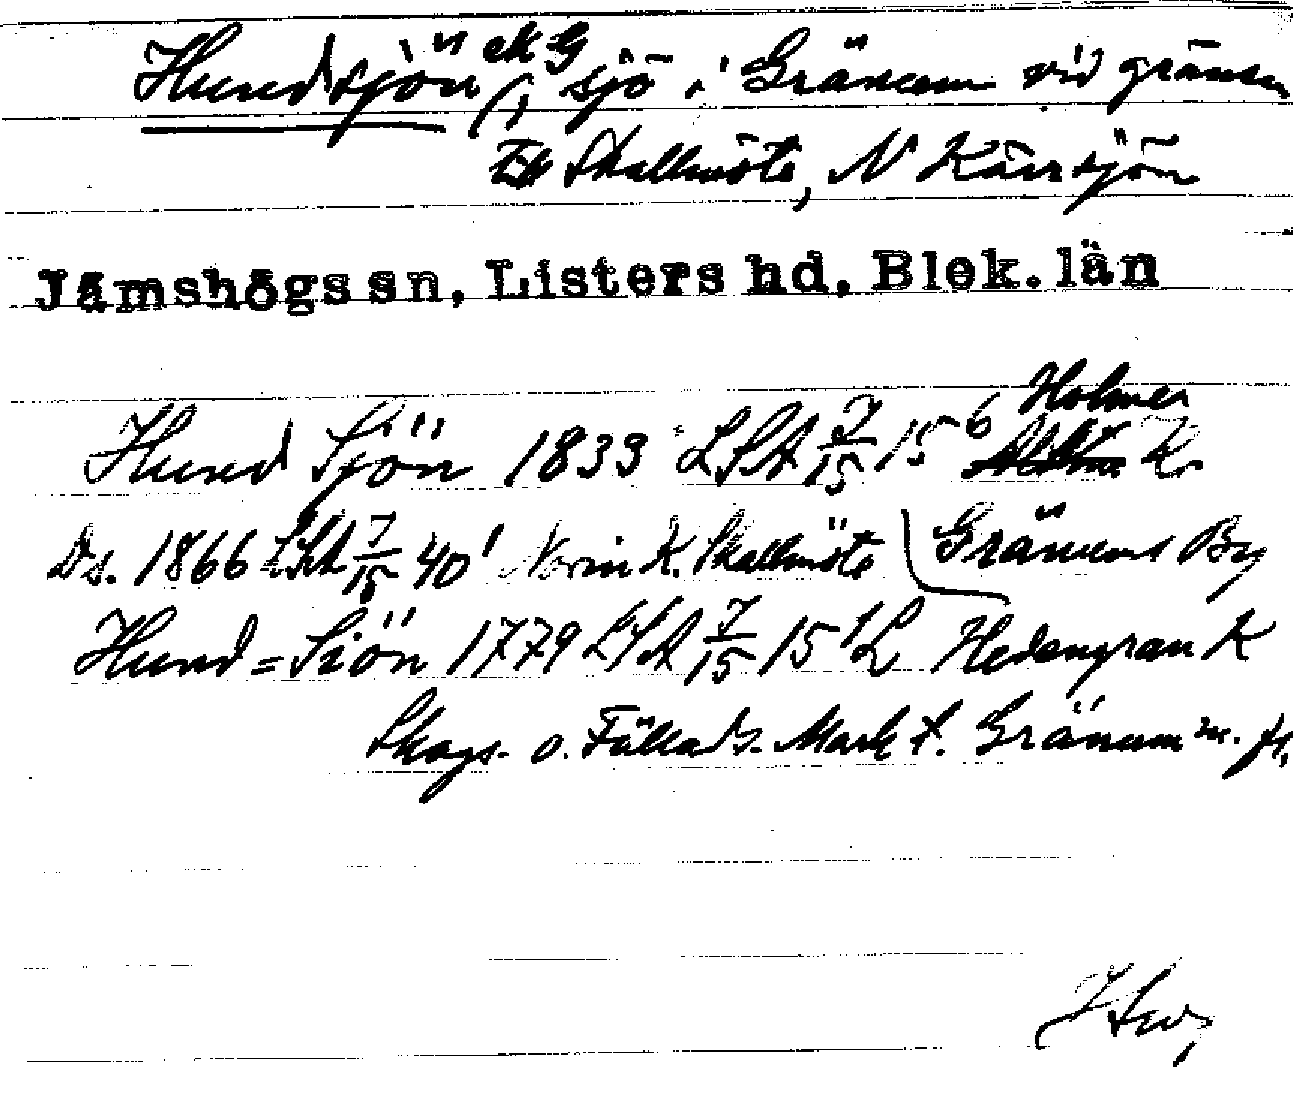 Hundsjön ek G, sjö i Gränum vid gränsen
till Skallmöte, N Kärrsjön
Jämshögs sn, Listers hd, Blek. län
Holmer
Hund Sjön 1833 LSA 7/15 15⁶ K
Ds. 1866 LSA 7/15 40¹ Norin K. Skallmöte Gränums By
Hund=Siön 1779 LSA 7/15 15¹L Hedengran K
Skogs- o. Fällads-Mark t. Gränum m. fl.